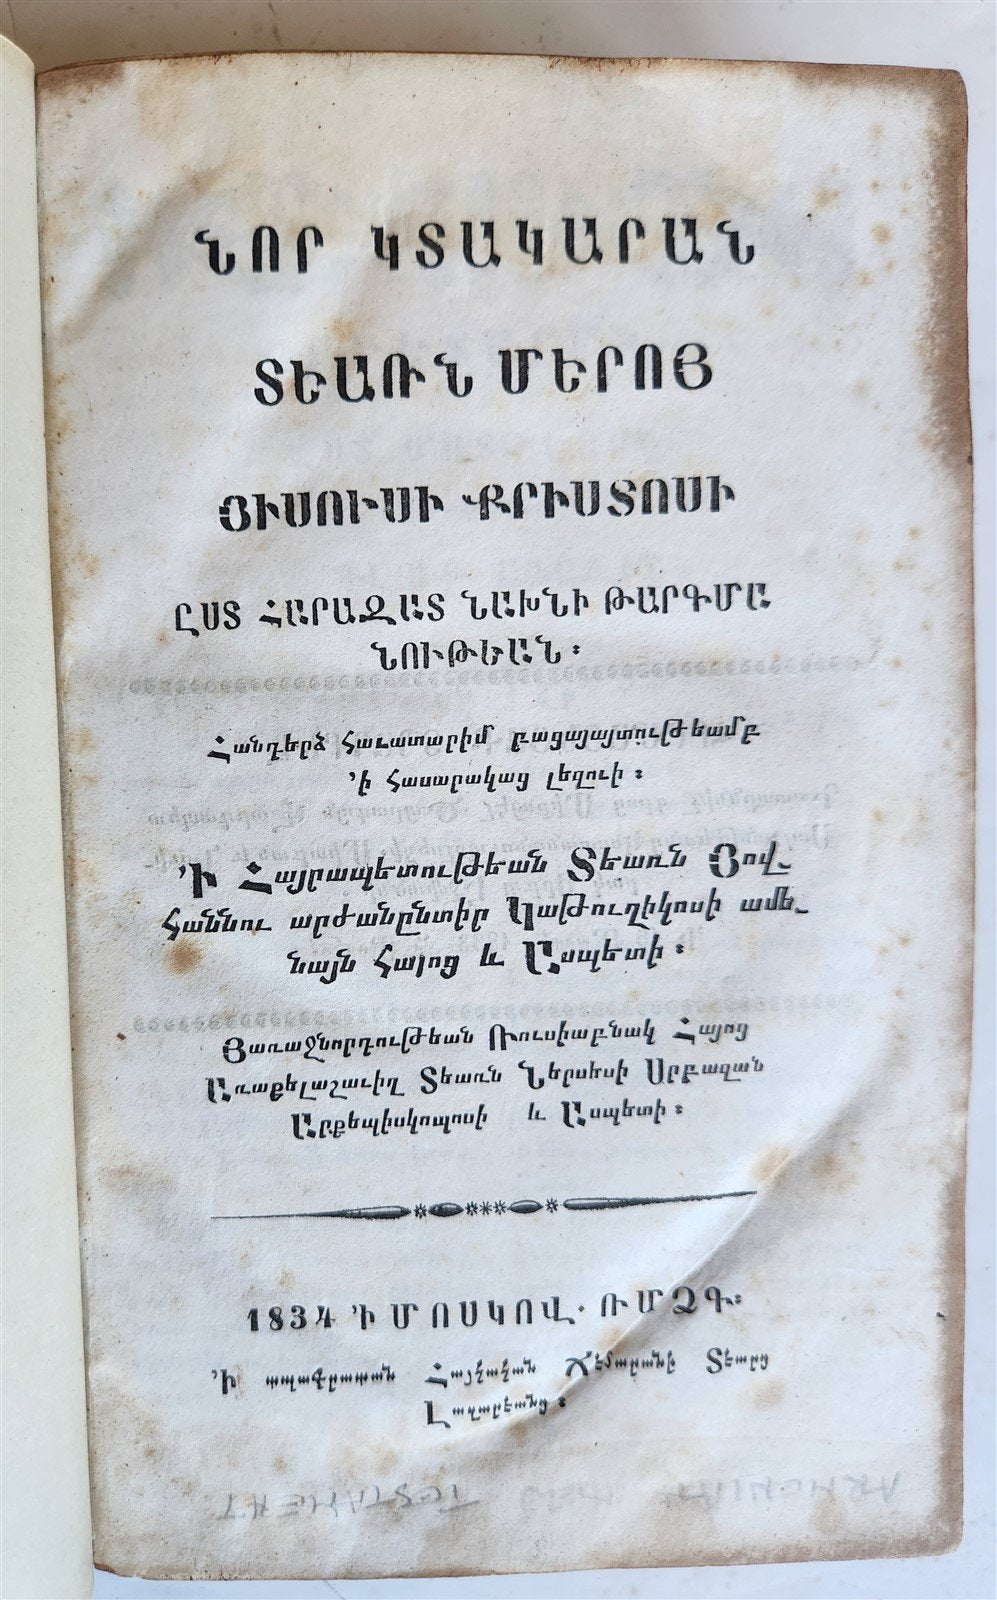 ՆՈՐ ԿՏԱԿԱՐԱՆ
ՏԵԱՌՆ ՄԵՐՈՅ
ՅԻՍՈՒՍԻ ՔՐԻՍՏՈՍԻ
ԸՍՏ ՀԱՐԱԶԱՏ ՆԱԽՆԻ ԹԱՐԳՄԱ
ՆՈՒԹԵԱՆ։
Հանդերձ հաւատարիմ բացայայտութեամբ
՚ի հասարակաց լեզուի։
՚Ի Հայրապետութեան Տեառն Յով֊
հաննու արժանընտիր Կաթուղիկոսի ամե֊
նայն Հայոց և Ասպետի։
Յառաջնորդութեան Ռուսիաբնակ Հայոց
Առաքելաշաւիղ Տեառն Ներսեսի Սրբազան
Արքեպիսկոպոսի և Ասպետի։
1834 ՚Ի ՄՈՍԿՈՎ. ՌՄՁԳ։
՚Ի տպարանի Հայկական Ճեմարանի Տեարց
Լազարեանց։
ARMENIAN NEW TESTAMENT